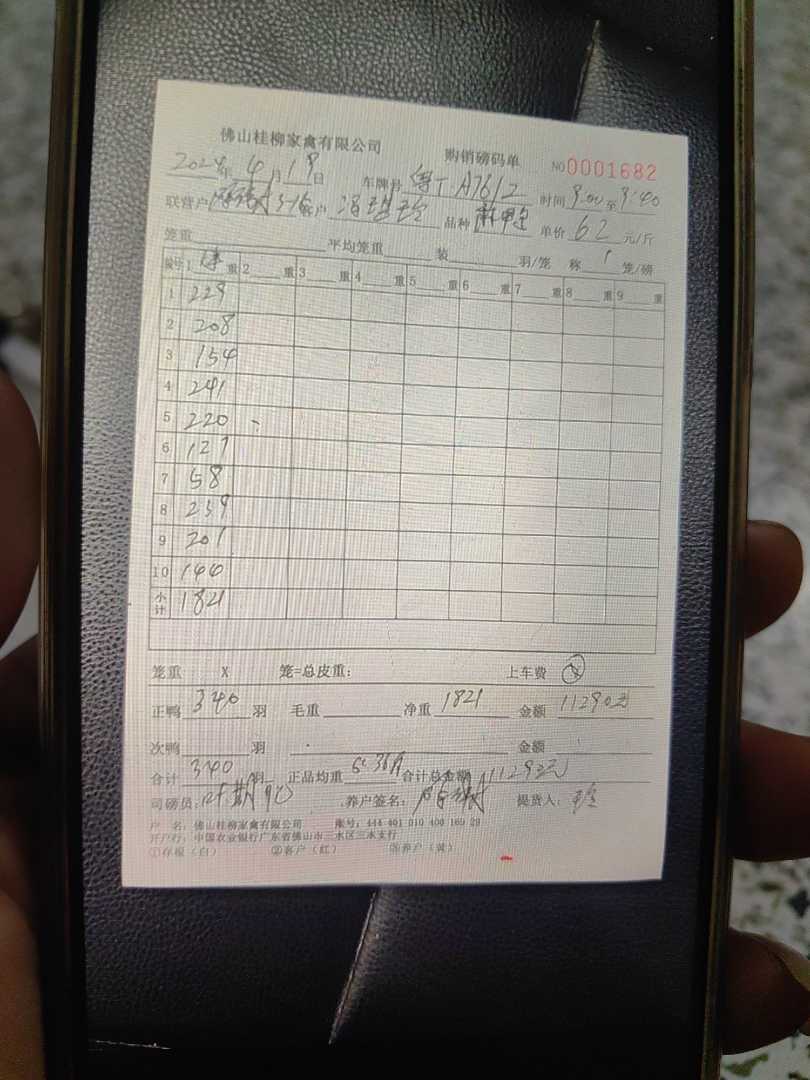 佛山桂柳家禽有限公司 购销磅码单 NO 0001682
2024年4月19日 车牌号 粤TA7612 时间 9:00至9:40
联营户 客户 品种 麻甲 单价 62 元/斤
笼重 平均笼重 装 羽/笼 称 1 笼/磅
编号 1 净 重 2 重 3 重 4 重 5 重 6 重 7 重 8 重 9 重
1 229
2 208
3 154
4 241
5 220
6 127
7 58
8 239
9 201
10 144
小计 1821
笼重 X 笼=总皮重: 上车费
正鸭 340 羽 毛重 净重 1821 金额 11290元
次鸭 羽 金额
合计 340 羽 正品均重 5.36斤 合计总金额 11290元
司磅员: 养户签名: 提货人: 玲
户 名: 佛山桂柳家禽有限公司 账号: 444 401 010 400 169 29
开户行: 中国农业银行广东省佛山市三水区三水支行
①存根(白) ②客户(红) ③养户(黄)